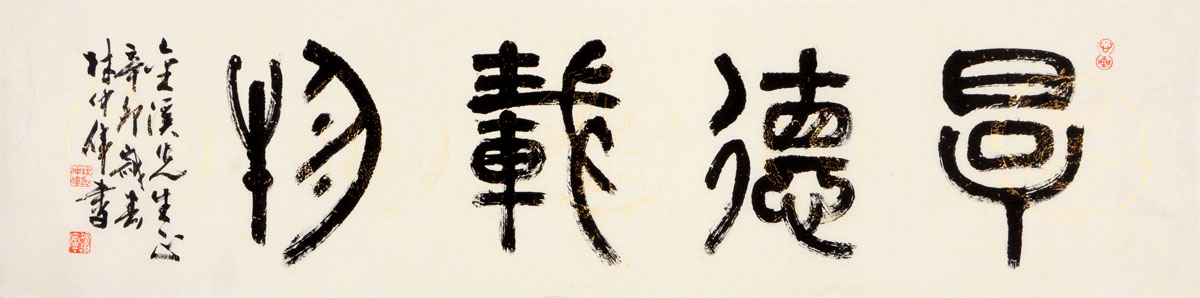 厚德載物
金溪先生正
辛卯歲春
林仲偉書